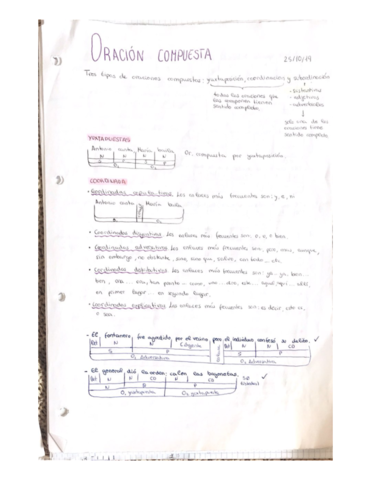 ORACIÓN COMPUESTA
25/10/19
Tres tipos de oraciones compuestas: yuxtaposición, coordinación y subordinación
todas las oraciones que
las componen tienen
sentido completo.
- sustantiva
- adjetiva
- adverbial
solo una de las
oraciones tiene
sentido completo
YUXTAPUESTAS
Antonio canta, María baila
N N N N
S P S P
O₁ O₂
Or. compuesta por yuxtaposición.
COORDINADAS
- Coordinadas copulativas: Los enlaces más frecuentes son: y, e, ni
Antonio canta y María baila
O₁ O₂
- Coordinadas disyuntivas: Los enlaces más frecuentes son, o, u o bien.
- Coordinadas adversativas: Los enlaces más frecuentes son, pero, mas, aunque,
sin embargo, no obstante, sino, sino que, salvo, con todo... etc.
- Coordinadas distributivas: Los enlaces más frecuentes son: ya... ya, bien...
bien, ora... ora, tan pronto... como, uno... otro, este... aquel, aquí... allí,
en primer lugar... en segundo lugar.
- Coordinadas explicativas: Los enlaces más frecuentes son: es decir, esto es,
o sea.
- El fontanero, fue agredido, por el vecino pero el individuo confesó su delito. ✓
Det N N C.Agente Det N N CD
S P S P
O₁ adversativa O₂ adversativa
- El general dió la orden; calen las bayonetas. ✓
Det N N CD N CD
S P P
O₁ yuxtapuesta O₂ yuxtapuesta